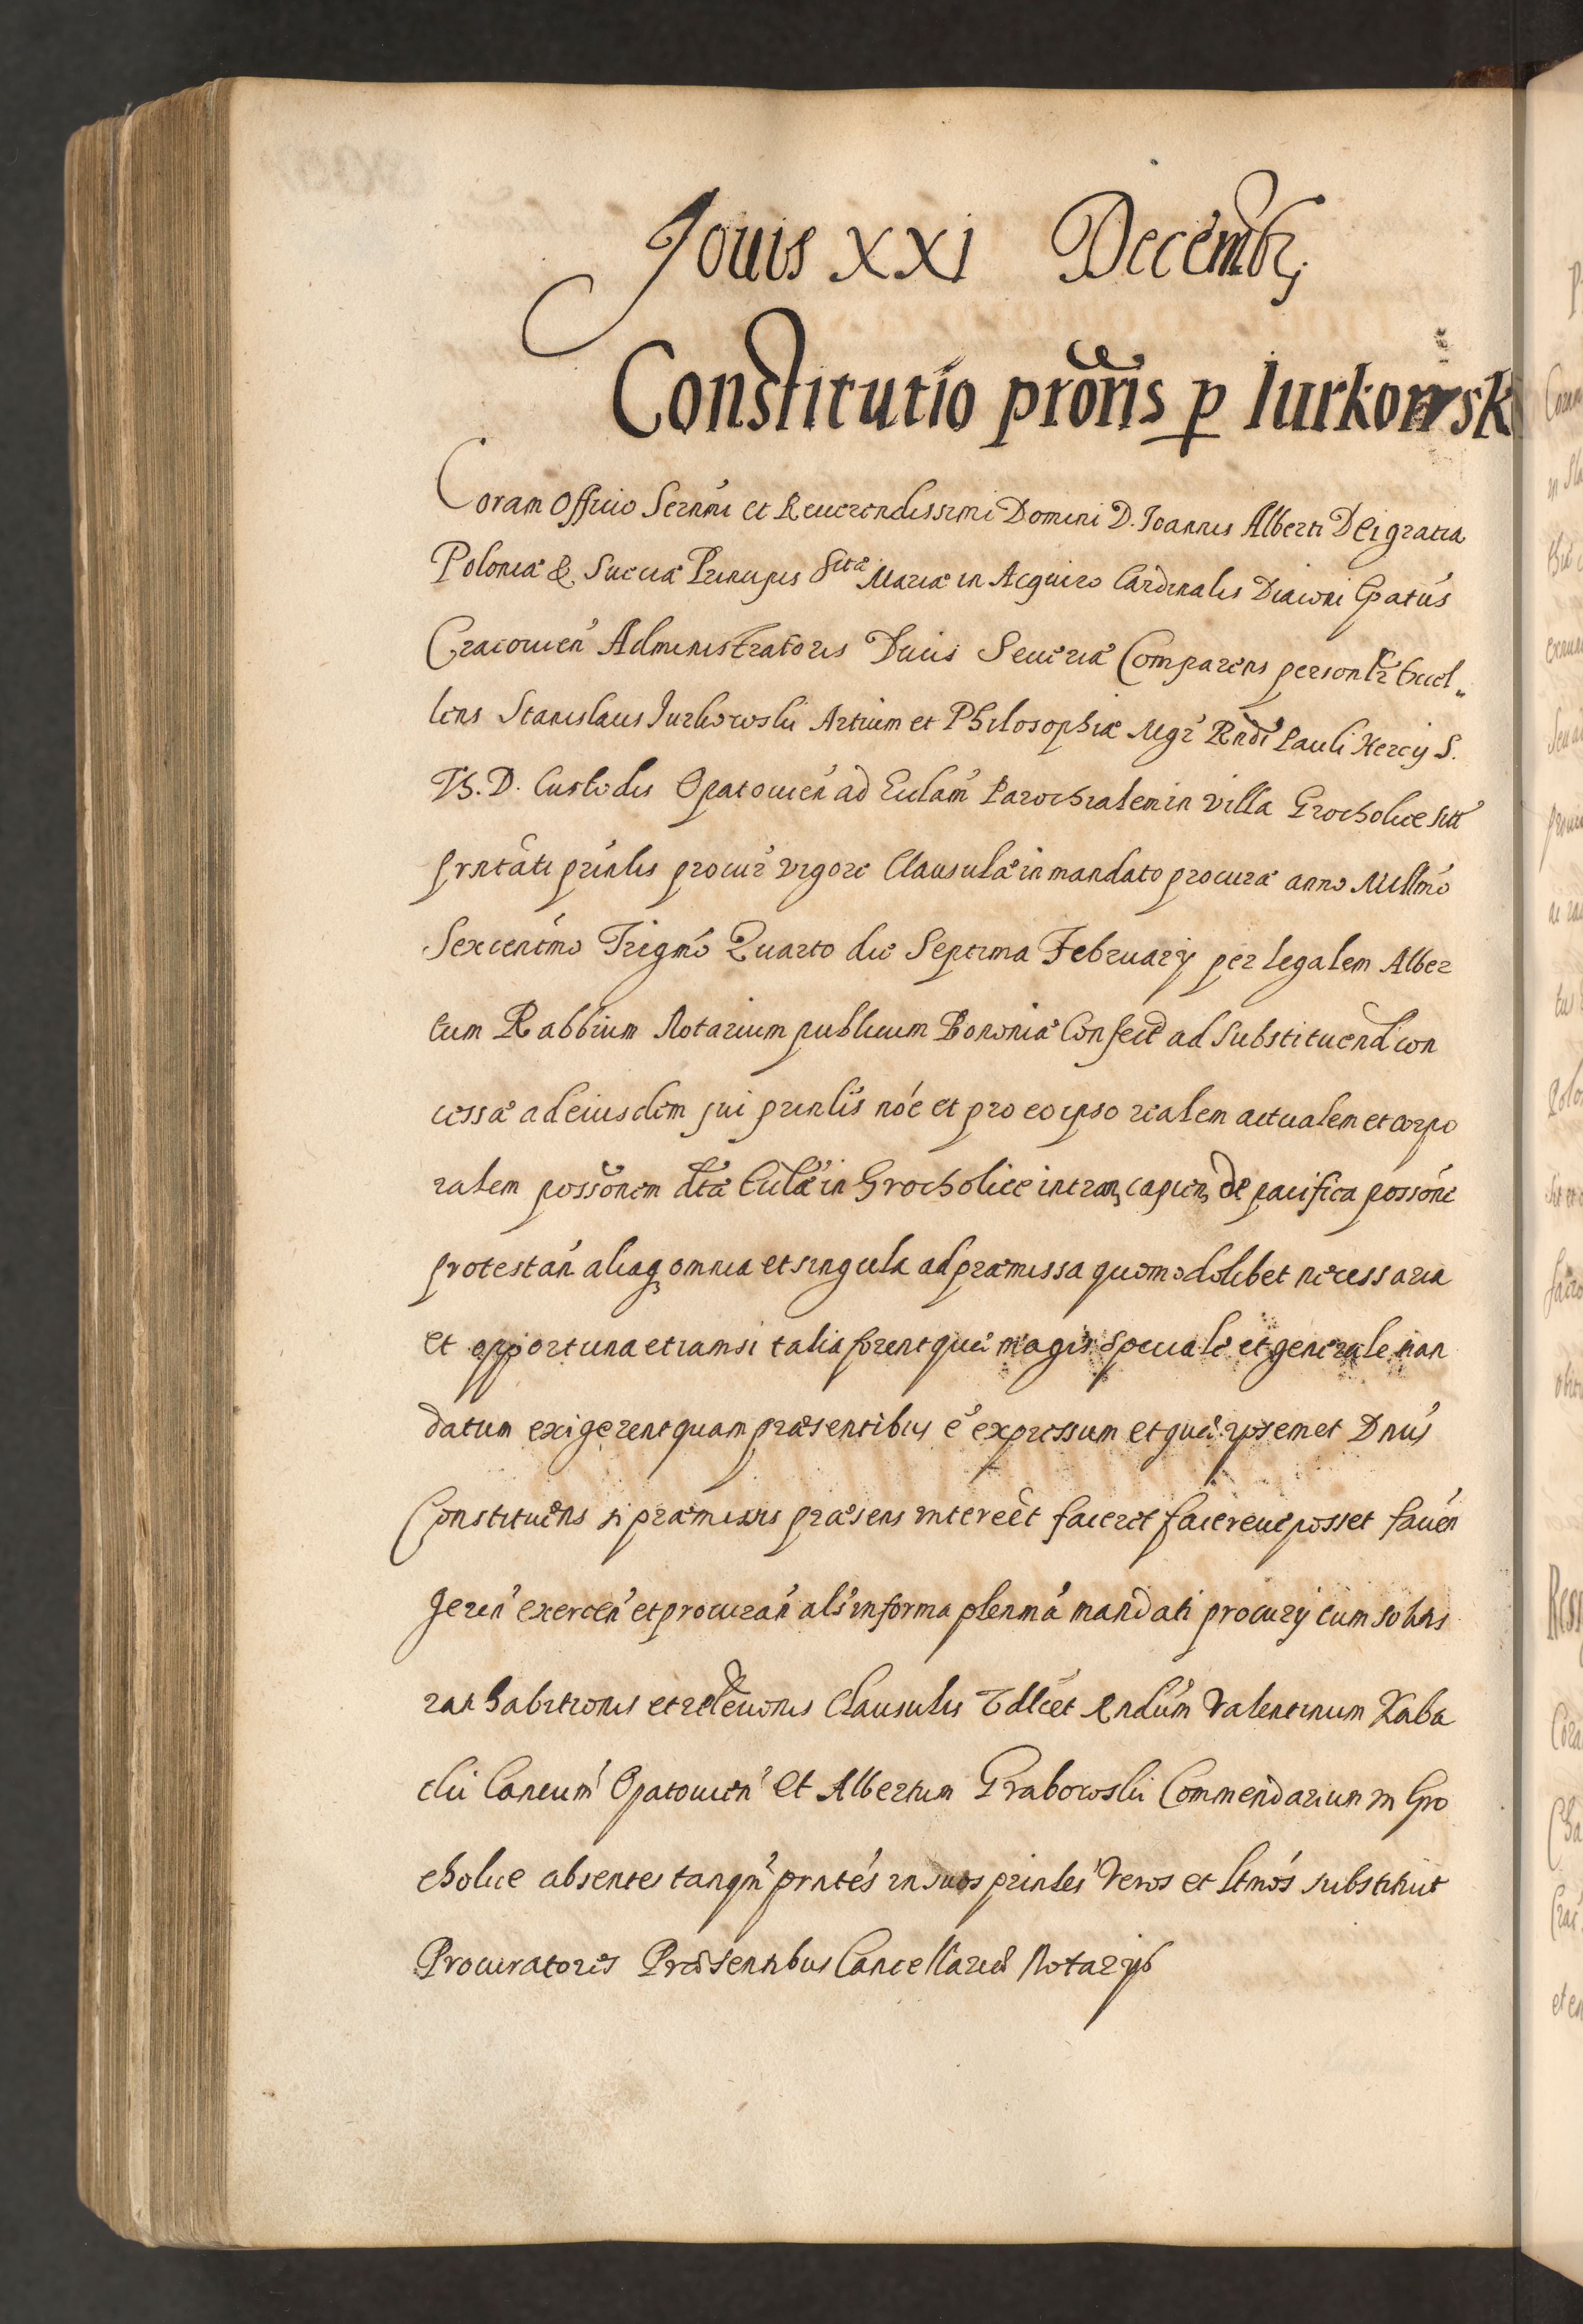 Jouis XXI Decemb;
Constitutio prōris p Iurkowsk
Coram Officio Sernmi et Reuerendissimi Domini D. Joannis Alberti Dei gratia
Poloniæ & Sueciæ Principis Stæ Mariæ in Acquiro Cardinalis Diaconi Epatus
Cracouien Administratoris Ducis Seueriæ Comparens personlr Excel„
lens Stanislaus Iurkowski Artium et Philosophiæ Mgr Rndi Pauli Hercij S.
Th. D. Custodis Opatouien ad Eculam Parochialem in villa Grocholice sit
prntati prinlis procur vigore Clausulæ in mandato procuræ anno Millmo
Sexcentmo Trigmo Quarto die Septima February per legalem Alber
tum Rabbium Notarium publicum Bononiæ Confect ad Substituend con
cessæ ad eiusdem sui prinlis noe et pro eo ipso realem actualem et corpo
ralem possonem dtæ Eculæ in Grocholice intran, capien, de pacifica possone
protestan aliaq omnia et singula ad præmissa quomodolibet necessaria
et opportuna etiamsi talia forent quæ magis Speciale et generale man
datum exigerent quam præsentibus e expressum et quæ ipsemet Dnus
Constituens si præmissis præsens intereet faceret facereue posset facien
geren exercen et procuran als in forma plenma mandati procurij cum solitis
rathabitionis et releuionis Clausulis Vdlcet Rndum Valentinum Xaba
cki Caneum Opatouien et Albertum Grabowski Commendarium in Gro
cholice absentes tanqm prntes in suos prinles Veros et ltmos substituit
Procuratores Præsentibus Cancellariæ Notarijs